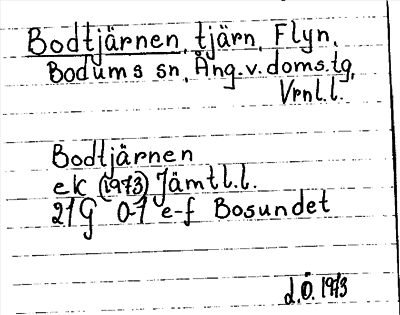 Bodtjärnen, tjärn, Flyn,
Bodums sn, Ång.v.doms.tg,
Vrnl.l.
Bodtjärnen
ek (1973) Jämtl.l.
21G 0-1 e-f Bosundet
d.Ö. 1973